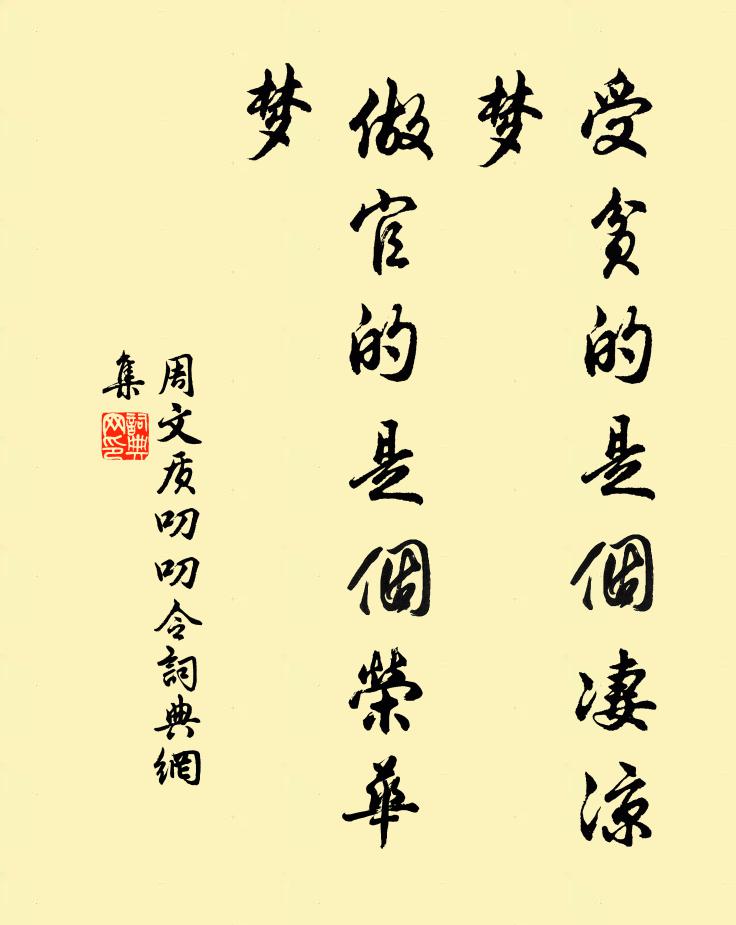 受貧的是個凄涼
梦
做官的是個榮華
梦
周文质叨叨令詞典網
集
詞典网印